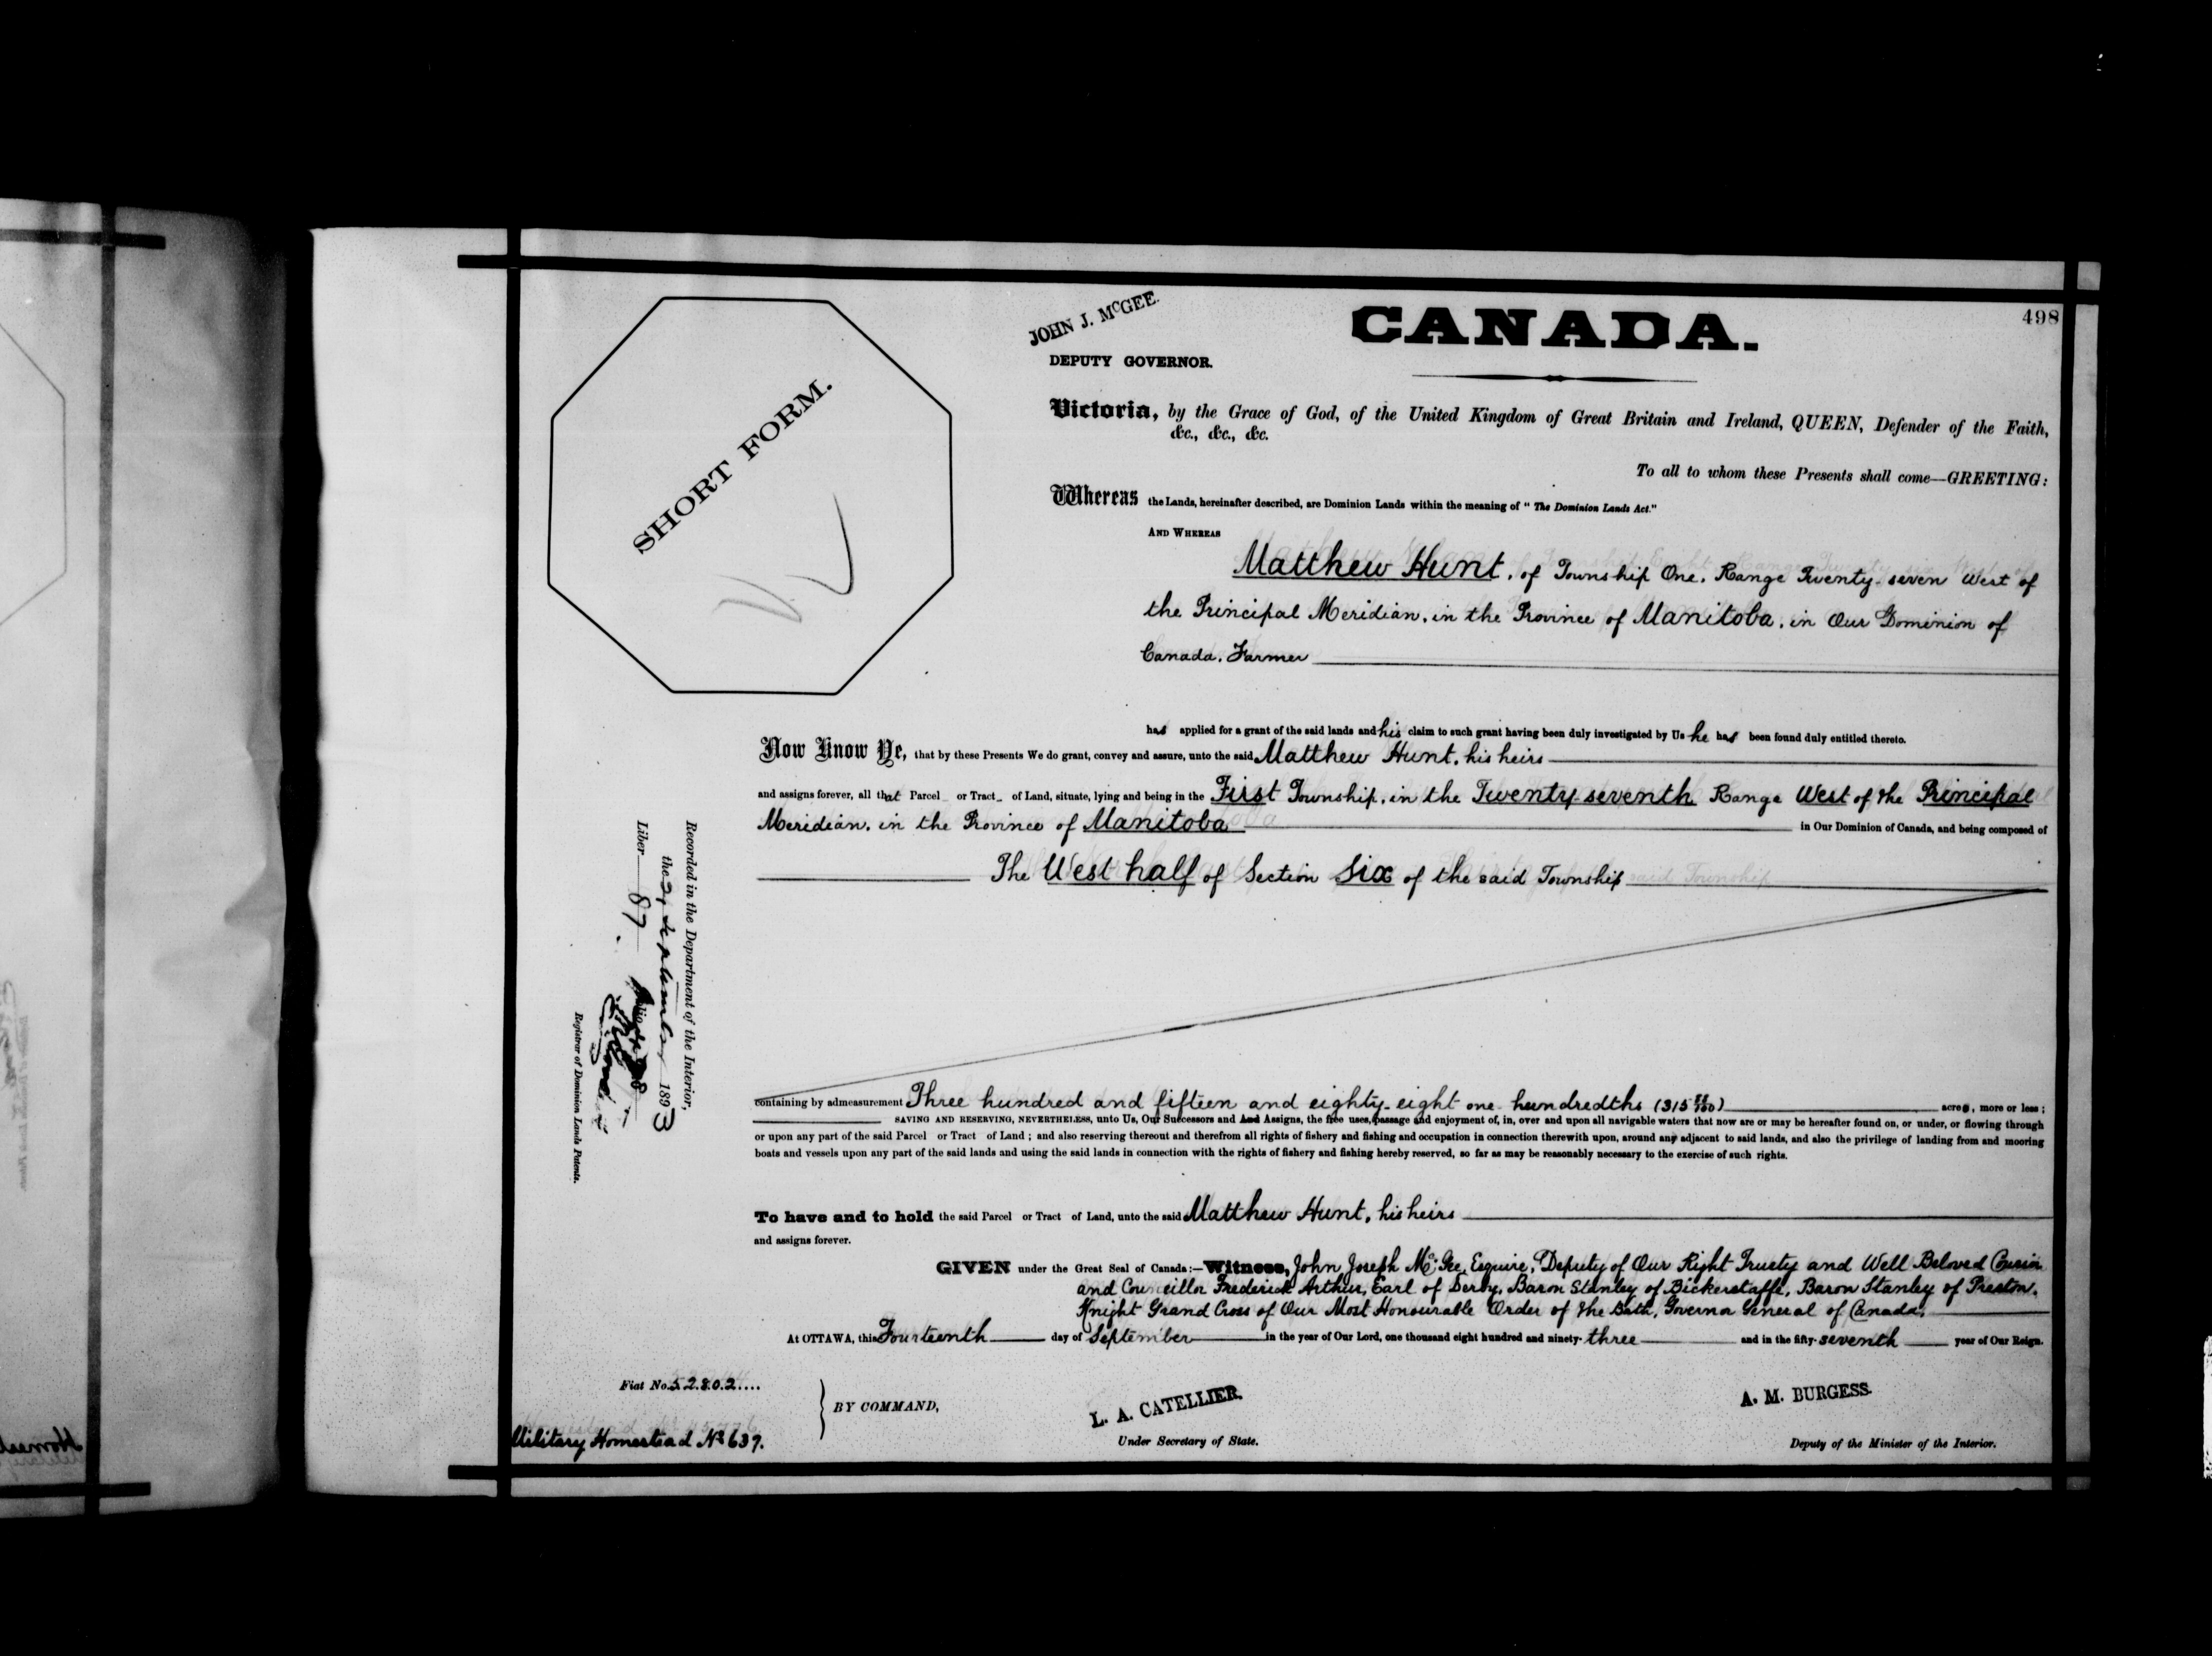 498
JOHN J. McGEE.
DEPUTY GOVERNOR.
CANADA.
SHORT FORM.
Victoria, by the Grace of God, of the United Kingdom of Great Britain and Ireland, QUEEN, Defender of the Faith,
&c., &c., &c.
To all to whom these Presents shall come—GREETING:
Whereas the Lands, hereinafter described, are Dominion Lands within the meaning of "The Dominion Lands Act."
AND WHEREAS
Matthew Hunt, of Township One, Range Twenty-seven West of
the Principal Meridian, in the Province of Manitoba, in Our Dominion of
Canada, Farmer
has applied for a grant of the said lands and his claim to such grant having been duly investigated by Us he has been found duly entitled thereto.
Now Know Ye, that by these Presents We do grant, convey and assure, unto the said Matthew Hunt, his heirs
and assigns forever, all that Parcel or Tract of Land, situate, lying and being in the First Township, in the Twenty-seventh Range West of the Principal
Meridian, in the Province of Manitoba in Our Dominion of Canada, and being composed of
The West half of Section Six of the said Township
containing by admeasurement Three hundred and fifteen and eighty-eight one-hundredths (315 88/100) acres, more or less;
SAVING AND RESERVING, NEVERTHELESS, unto Us, Our Successors and And Assigns, the free uses, passage and enjoyment of, in, over and upon all navigable waters that now are or may be hereafter found on, or under, or flowing through
or upon any part of the said Parcel or Tract of Land; and also reserving thereout and therefrom all rights of fishery and fishing and occupation in connection therewith upon, around any adjacent to said lands, and also the privilege of landing from and mooring
boats and vessels upon any part of the said lands and using the said lands in connection with the rights of fishery and fishing hereby reserved, so far as may be reasonably necessary to the exercise of such rights.
To have and to hold the said Parcel or Tract of Land, unto the said Matthew Hunt, his heirs
and assigns forever.
GIVEN under the Great Seal of Canada:—Witness, John Joseph McGee, Esquire, Deputy of Our Right Trusty and Well Beloved Cousin
and Councillor Frederick Arthur, Earl of Derby, Baron Stanley of Bickerstaffe, Baron Stanley of Preston,
Knight Grand Cross of Our Most Honourable Order of the Bath, Governor General of Canada,
At OTTAWA, this Fourteenth day of September in the year of Our Lord, one thousand eight hundred and ninety-three and in the fifty-seventh year of Our Reign.
Fiat No. 52802
Military Homestead No 639.
BY COMMAND,
L. A. CATELLIER.
Under Secretary of State.
A. M. BURGESS.
Deputy of the Minister of the Interior.
Recorded in the Department of the Interior,
the September 1893
Liber 87.
Registrar of Dominion Lands Patents.